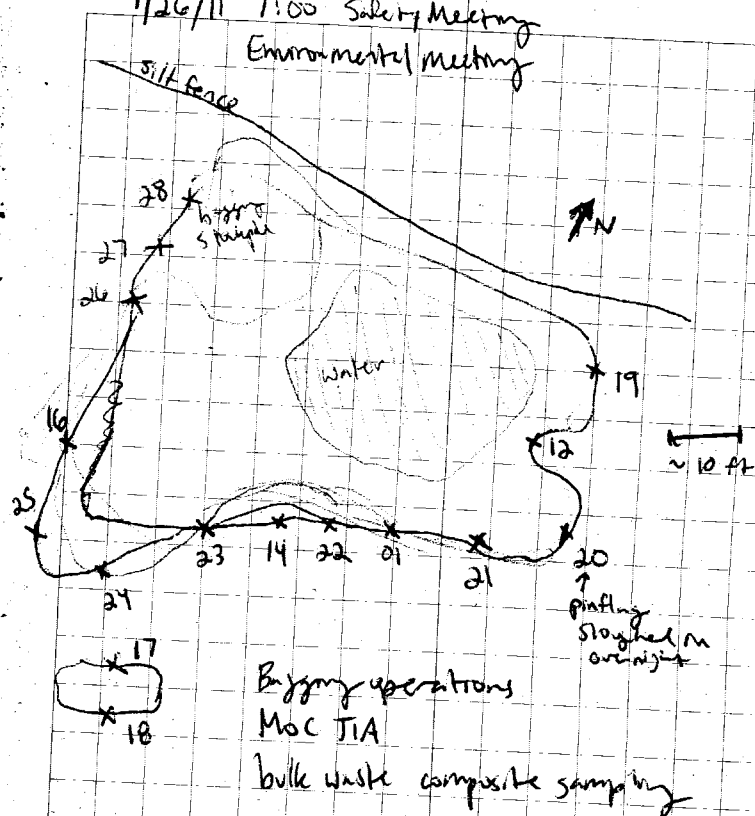 1/26/11 7:00 Safety Meeting
Environmental Meeting
silt fence
28
bagging
stockpile
27
26
N
water
19
16
12
~ 10 ft
25
23
14
22
01
21
20
24
pinflag
sloughed in
overnight
17
18
Bagging operations
MOC JIA
bulk waste composite sampling